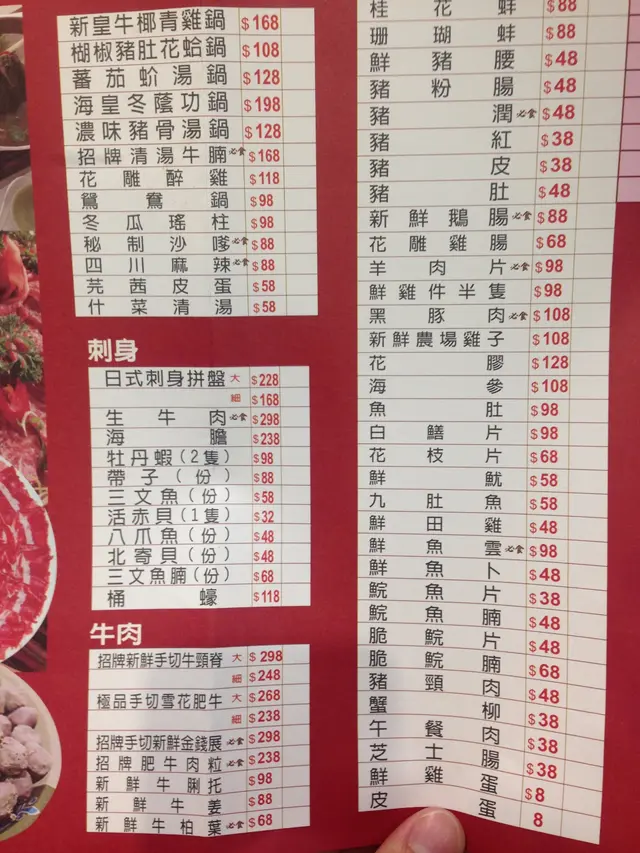 新皇牛椰青雞鍋 $168
楜椒豬肚花蛤鍋 $108
蕃茄蚧湯鍋 $128
海皇冬蔭功鍋 $198
濃味豬骨湯鍋 $128
招牌清湯牛腩 必食 $168
花雕醉雞 $118
鴛鴦鍋 $98
冬瓜瑤柱 $98
秘制沙嗲 必食 $88
四川麻辣 必食 $88
芫茜皮蛋 $58
什菜清湯 $58
刺身
日式刺身拼盤 大 $228
細 $168
生牛肉 必食 $298
海膽 $238
牡丹蝦(2隻) $98
帶子(份) $88
三文魚(份) $58
活赤貝(1隻) $32
八爪魚(份) $48
北寄貝(份) $48
三文魚腩(份) $68
桶蠔 $118
牛肉
招牌新鮮手切牛頸脊 大 $298
細 $248
極品手切雪花肥牛 大 $268
細 $238
招牌手切新鮮金錢展 必食 $298
招牌肥牛肉粒 必食 $238
新鮮牛脷托 $98
新鮮牛姜 $88
新鮮牛柏葉 必食 $68
桂花蚌 $88
珊瑚蚌 $88
鮮豬腰 $48
豬粉腸 $48
豬潤 必食 $48
豬紅 $38
豬皮 $38
豬肚 $48
新鮮鵝腸 必食 $88
花雕雞腸 $68
羊肉片 必食 $98
鮮雞件半隻 $98
黑豚肉 必食 $108
新鮮農場雞子 $108
花膠 $128
海參 $108
魚肚 $98
白鱔片 $98
花枝片 $68
鮮魷 $58
九肚魚 $58
鮮田雞 $48
鮮魚雲 必食 $98
鮮魚卜 $48
鯇魚片 $38
鯇魚腩 $48
脆鯇片 $48
脆鯇腩 $68
豬頸肉 $48
蟹柳 $38
午餐肉 $38
芝士腸 $38
鮮雞蛋 $8
皮蛋 8